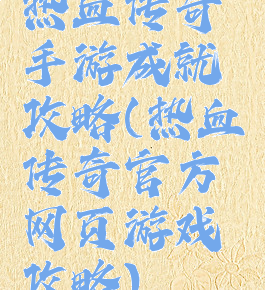 热血传奇
手游成就
攻略(热血
传奇官方
网页游戏
攻略)